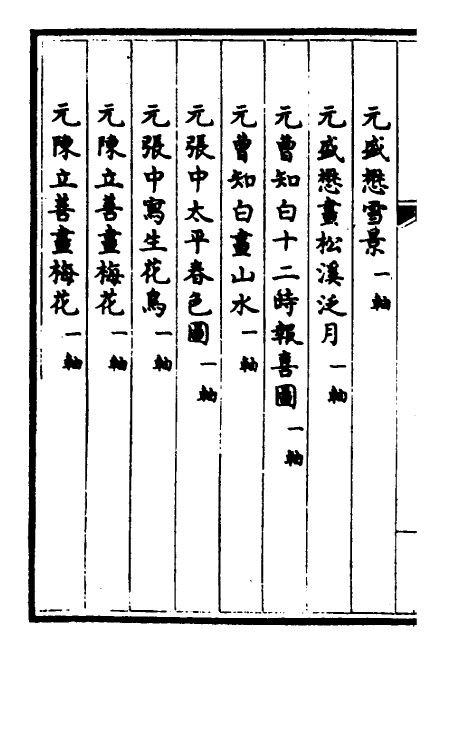 元盛懋雪景一軸
元盛懋畫松溪泛月一軸
元曹知白十二時報喜圖一軸
元曹知白畫山水一軸
元張中太平春色圖一軸
元張中寫生花鳥一軸
元陳立善畫梅花一軸
元陳立善畫梅花一軸